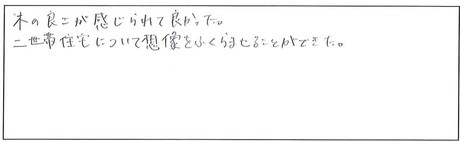 木の良さが感じられて良かった。
二世帯住宅について想像をふくらませることができた。